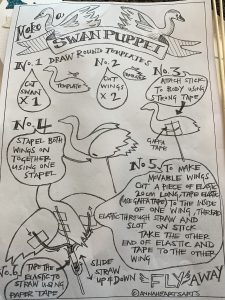 Make
a
SWAN PUPPET
No. 1 DRAW ROUND TEMPLATES
CUT
SWAN
X 1
TEMPLATE
No. 2
CUT
WINGS
X 2
TEMPLATE
No. 3
ATTACH STICK
TO BODY USING
STRONG TAPE
GAFFA
TAPE
No. 4
STAPEL BOTH
WINGS ON
TOGETHER
USING ONE
STAPEL.
No. 5 TO MAKE
MOVABLE WINGS
CUT A PIECE OF ELASTIC
20cm LONG, TAPE ELASTIC
(USE GAFFA TAPE) TO THE INSIDE
OF ONE WING, THREAD
ELASTIC THROUGH STRAW AND
SLOT ON STICK
TAKE THE OTHER
END OF ELASTIC AND
TAPE TO THE OTHER
WING
No. 6 TAPE THE
ELASTIC TO
STRAW USING
PAPER TAPE
SLIDE
STRAW
UP & DOWN
FLY AWAY